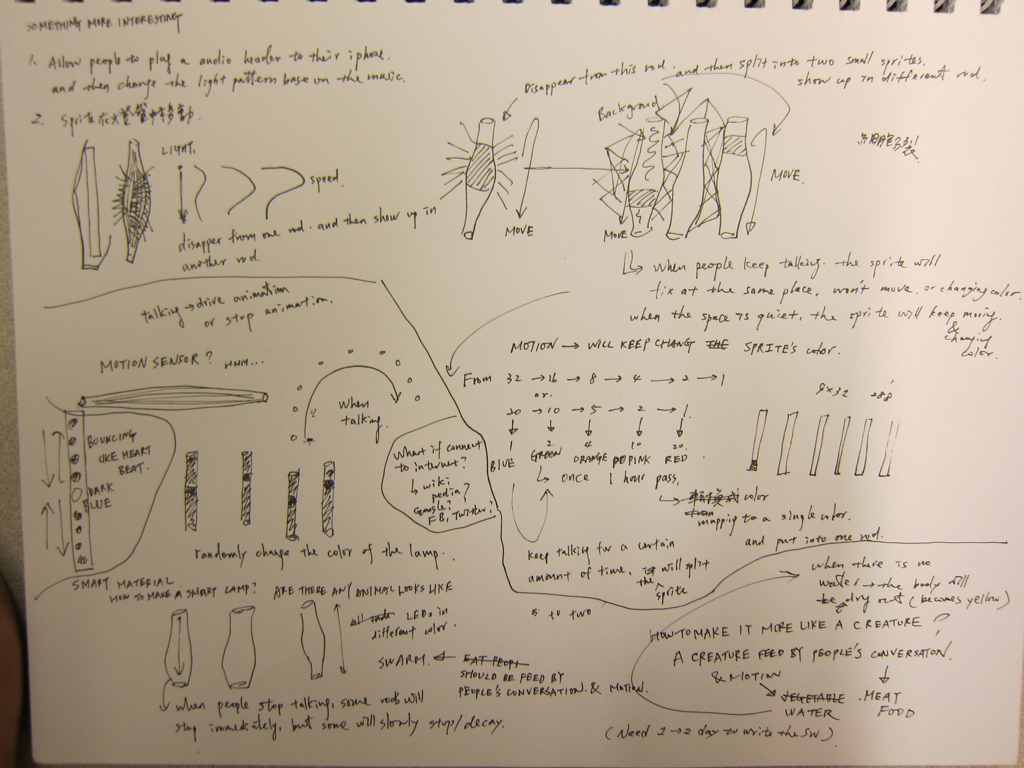 SOMETHING MORE INTERESTING
1. Allow people to plug a audio header to their iphone.
and then change the light pattern base on the music.
2. Sprite 在 燈管中移動.
LIGHT.
speed.
disapper from one rod. and then show up in
another rod.
Disappear from this rod. and then split into two small sprites.
show up in different rod.
Background
MOVE
MOVE
MOVE.
When people keep talking. the sprite will
fix at the same place, won't move, or changing color.
when the space is quiet, the sprite will keep moving
& changing
color.
MOTION → WILL KEEP CHANG THE SPRITE'S color.
talking → drive animation
or stop animation.
MOTION SENSOR? HMM...
when
talking.
BOUNCING
LIKE HEART
BEAT.
DARK
BLUE
randomly change the color of the lamp.
What if connect
to internet?
wiki
pedia?
Google?
FB, Twitter?
From 32 → 16 → 8 → 4 → 2 → 1
or.
20 → 10 → 5 → 2 → 1.
1 2 4 10 20.
BLUE GREEN ORANGE PINK RED.
once 1 hour pass,
color
mapping to a single color.
and put into one rod.
9×32 288
keep talking for a certain
amount of time, the sprite will split
to two
SMART MATERIAL
HOW TO MAKE A SMART LAMP? ARE THERE ANY ANIMAL LOOKS LIKE
LEDs in
different color.
SWARM. ← EAT PEOPL
SHOULD BE FEED BY
PEOPLE'S CONVERSATION. & MOTION.
when people stop talking, some rods will
stop immediately, but some will slowly stop/decay.
when there is no
water → the body will
be dry out (becomes yellow)
HOW TO MAKE IT MORE LIKE A CREATURE?
A CREATURE FEED BY PEOPLE'S CONVERSATON.
& MOTION
VEGETABLE . MEAT
WATER FOOD
(Need 1→2 day to write the SW)